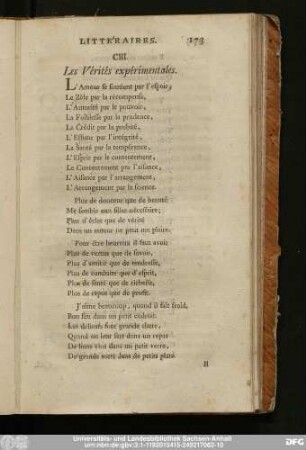 LITTÉRAIRES. 173
CIII.
Les Vérités expérimentales.
L'Amour se soutient par l'espoir,
Le Zèle par la récompense,
L'Autorité par le pouvoir,
La Foiblesse par la prudence,
Le Crédit par la probité,
L'Estime par l'intégrité,
La Santé par la tempérance,
L'Esprit par le contentement,
Le Contentement par l'aisance,
L'Aisance par l'arrangement,
L'Arrangement par la science.
Plus de douceur que de beauté
Me semble une félicité;
Plus d'éclat que de vérité
Dans un auteur ne peut me plaire.
Pour être heureux il faut avoir
Plus de vertus que de savoir,
Plus d'amitié que de tendresse,
Plus de conduite que d'esprit,
Plus de santé que de richesse,
Plus de repos que de profit.
J'aime beaucoup, quand il fait froid,
Bon feu dans un petit endroit.
Les délicats font grande chère,
Quand on leur sert dans un repos
De bons vins dans un petit verre,
De grands mets dans de petits plats.
H
Universitäts- und Landesbibliothek Sachsen-Anhalt
urn:nbn:de:gbv:3:1-1192015415-249217662-18
DFG